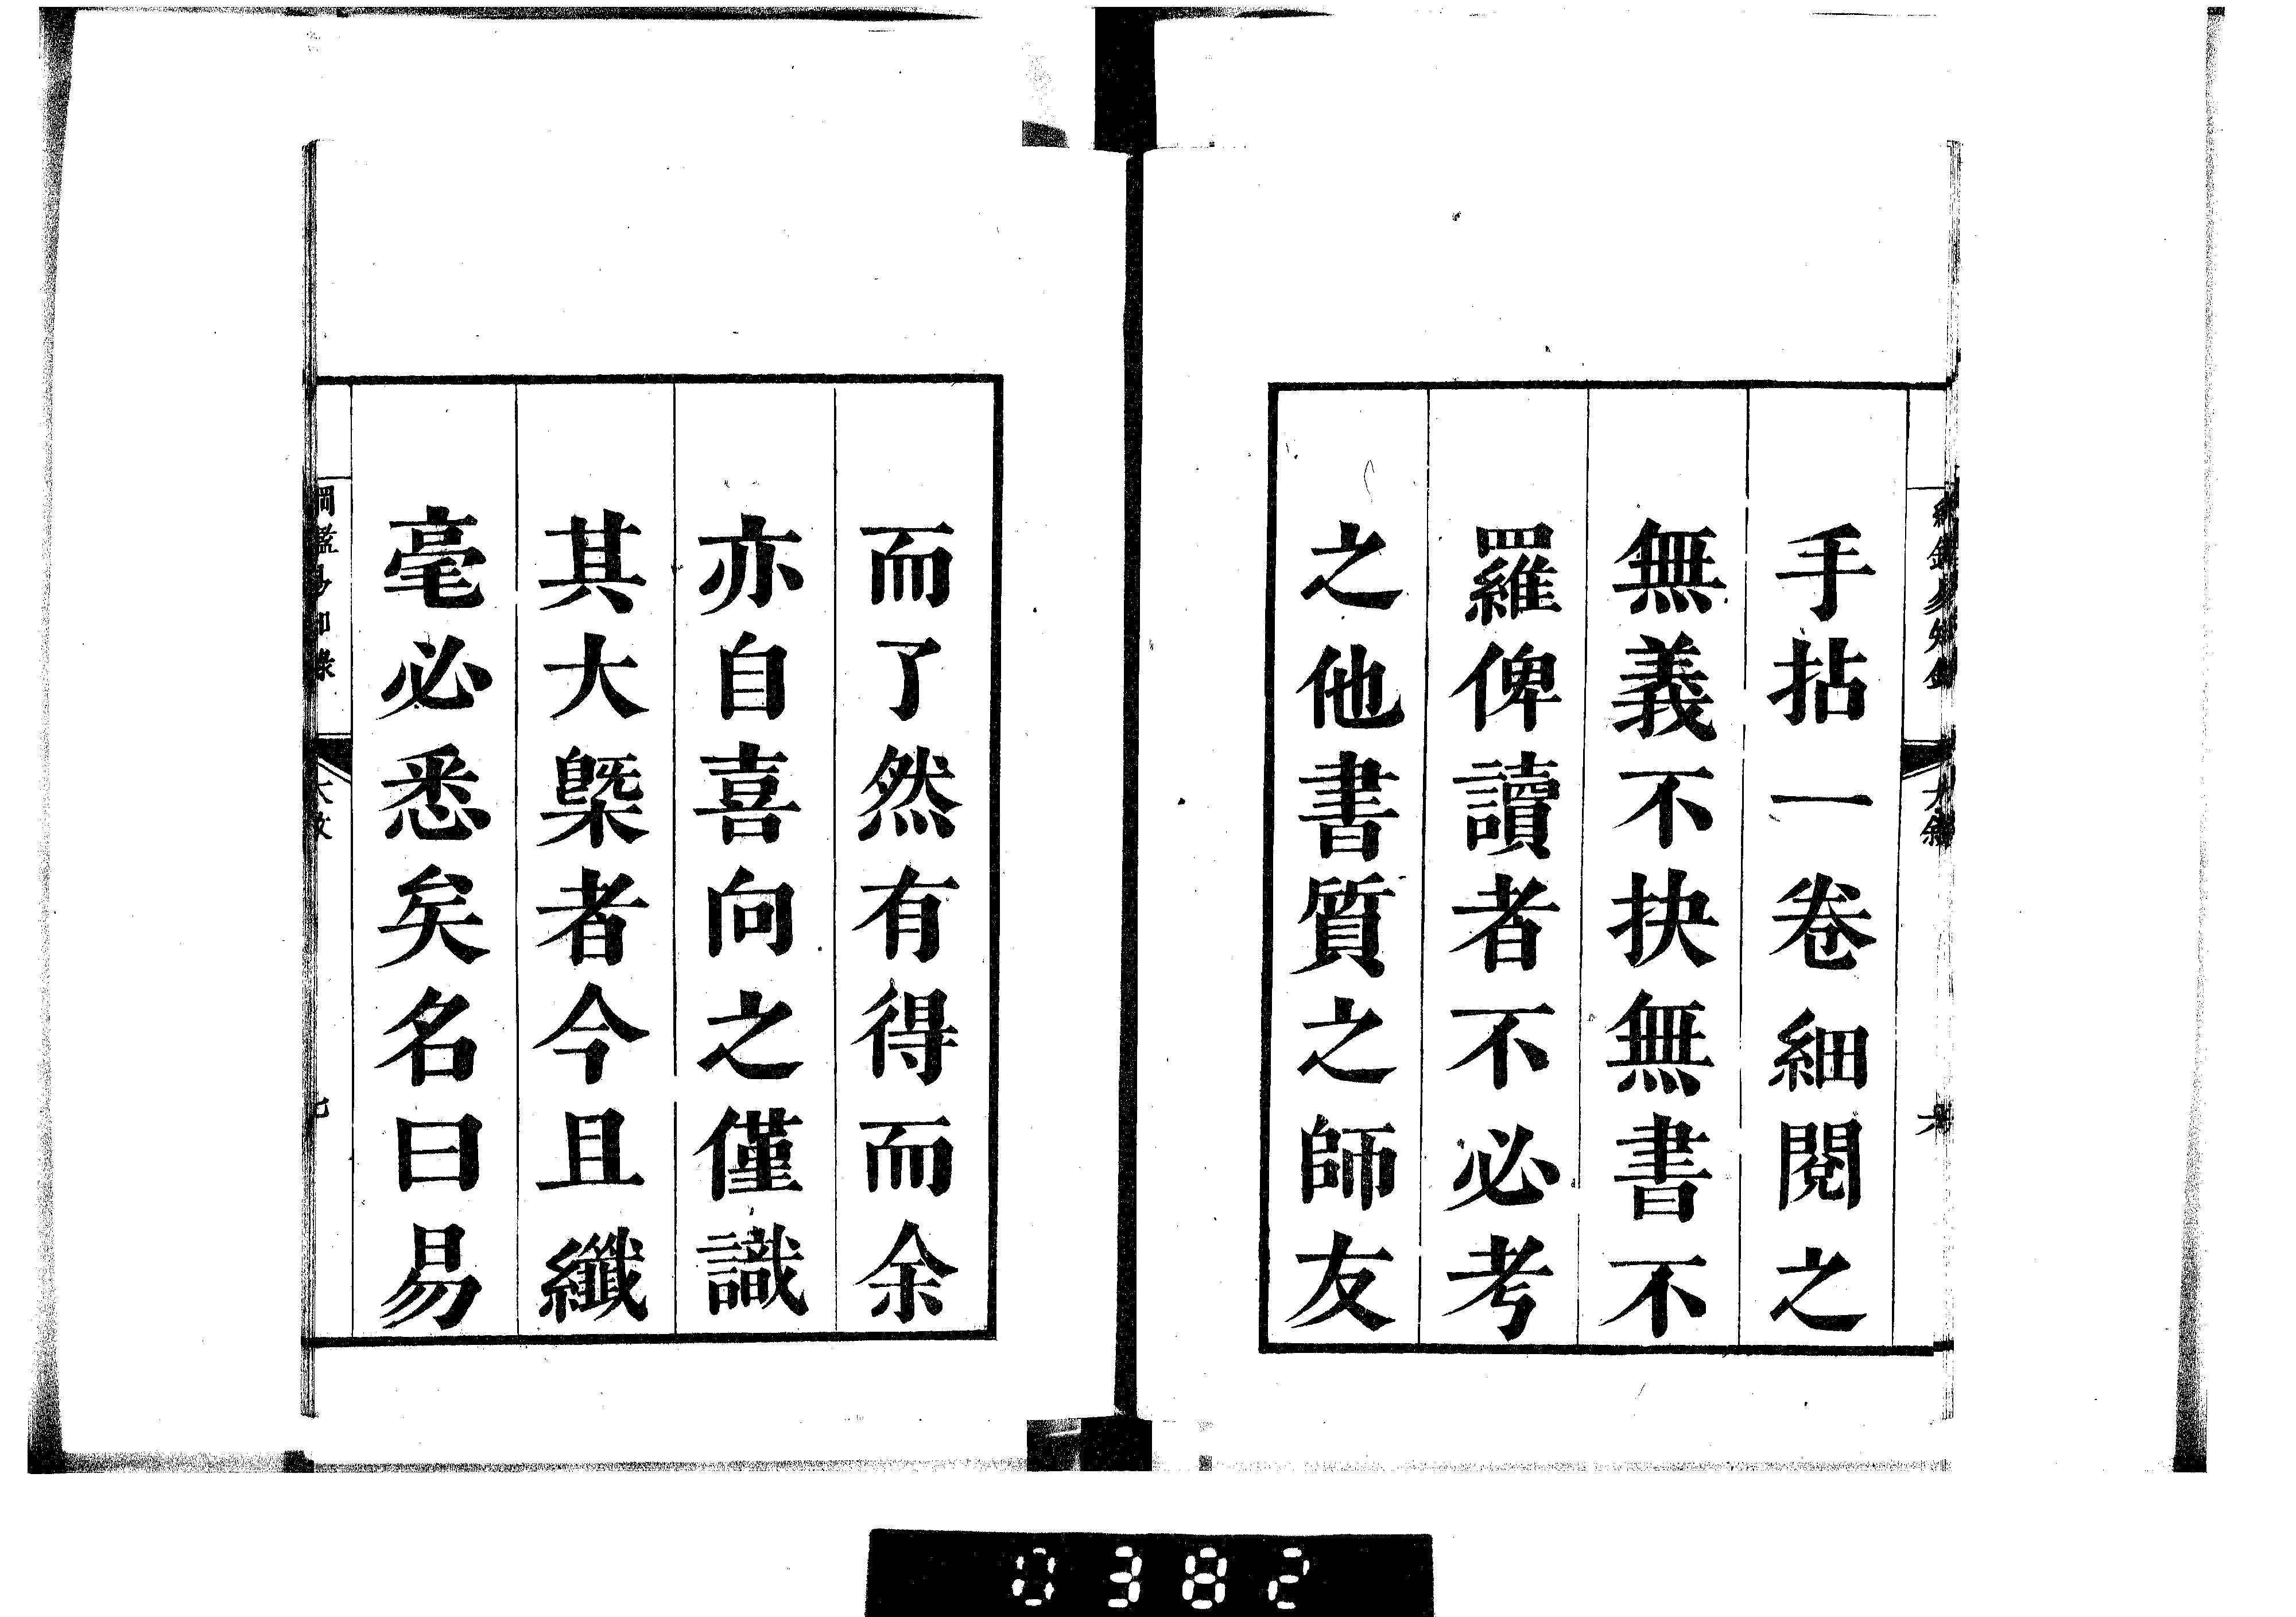 手拈一卷細閱之
無義不抉無書不
羅俾讀者不必考
之他書質之師友
而了然有得而余
亦自喜向之僅識
其大槩者今且纖
毫必悉矣名曰易
0382